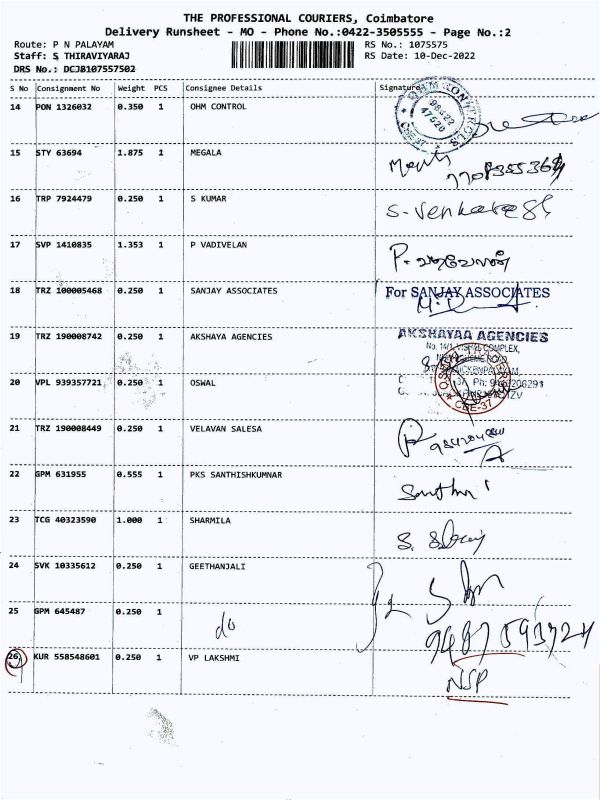 THE PROFESSIONAL COURIERS, Coimbatore
Delivery Runsheet - MO - Phone No.:0422-3505555 - Page No.:2
Route: P N PALAYAM RS No.: 1075575
Staff: S THIRAVIYARAJ RS Date: 10-Dec-2022
DRS No.: DCJB107557502
S No Consignment No Weight PCS Consignee Details Signature
14 PON 1326032 0.350 1 OHM CONTROL
15 STY 63694 1.875 1 MEGALA
16 TRP 7924479 0.250 1 S KUMAR
17 SVP 1410835 1.353 1 P VADIVELAN P. வடிவேலன்
18 TRZ 100005468 0.250 1 SANJAY ASSOCIATES For SANJAY ASSOCIATES
19 TRZ 190008742 0.250 1 AKSHAYA AGENCIES AKSHAYAA AGENCIES
20 VPL 939357721 0.250 1 OSWAL CBE-37
21 TRZ 190008449 0.250 1 VELAVAN SALESA
22 GPM 631955 0.555 1 PKS SANTHISHKUMNAR
23 TCG 40323590 1.000 1 SHARMILA
24 SVK 10335612 0.250 1 GEETHANJALI
25 GPM 645487 0.250 1 do
26 KUR 558548601 0.250 1 VP LAKSHMI NSP